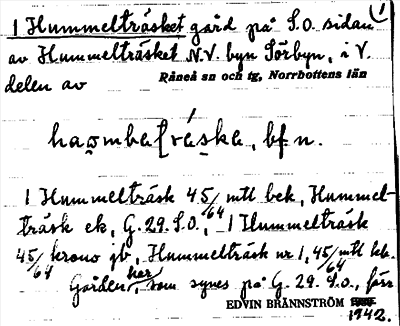 1 Hummelträsket gård på S.O. sidan
1
av Hummelträsket N.V. byn Sörbyn, i V.
delen av
Råneå sn och tg, Norrbottens län
1 Hummelträsk 45/64 mtl bek, Hummel-
träsk ek, G. 29. S.O., 1 Hummelträsk
45/64 krono jb, Hummelträsk nr 1, 45/64 mtl
Gården, har, som synes på G. 29. S.O., förr
EDVIN BRÄNNSTRÖM
1942.